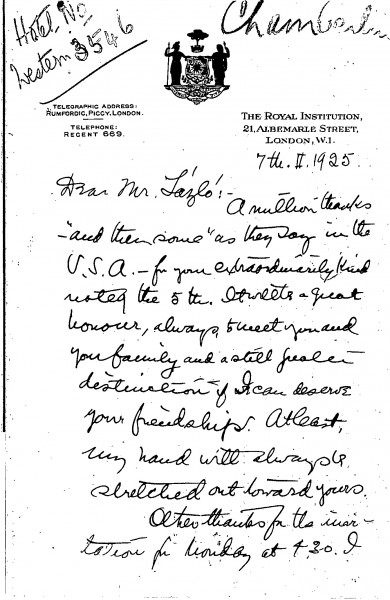 Hotel No
Western 3546
Chamberlin
TELEGRAPHIC ADDRESS:
RUMFORDIC, PICCY, LONDON.
TELEPHONE:
REGENT 669.
THE ROYAL INSTITUTION,
21, ALBEMARLE STREET,
LONDON, W.1.
7th. II. 1925.
Dear Mr. László!:-
A million thanks
-"and then some" as they say in the
U.S.A. - for your extraordinarily kind
note of the 5th. It will be a great
honour, always, to meet you and
you family and a still greater
distinction if I can deserve
your friendships. At least,
my hand will always be
stretched out toward yours.
Other thanks for the invi-
tation for Monday at 4.30. I